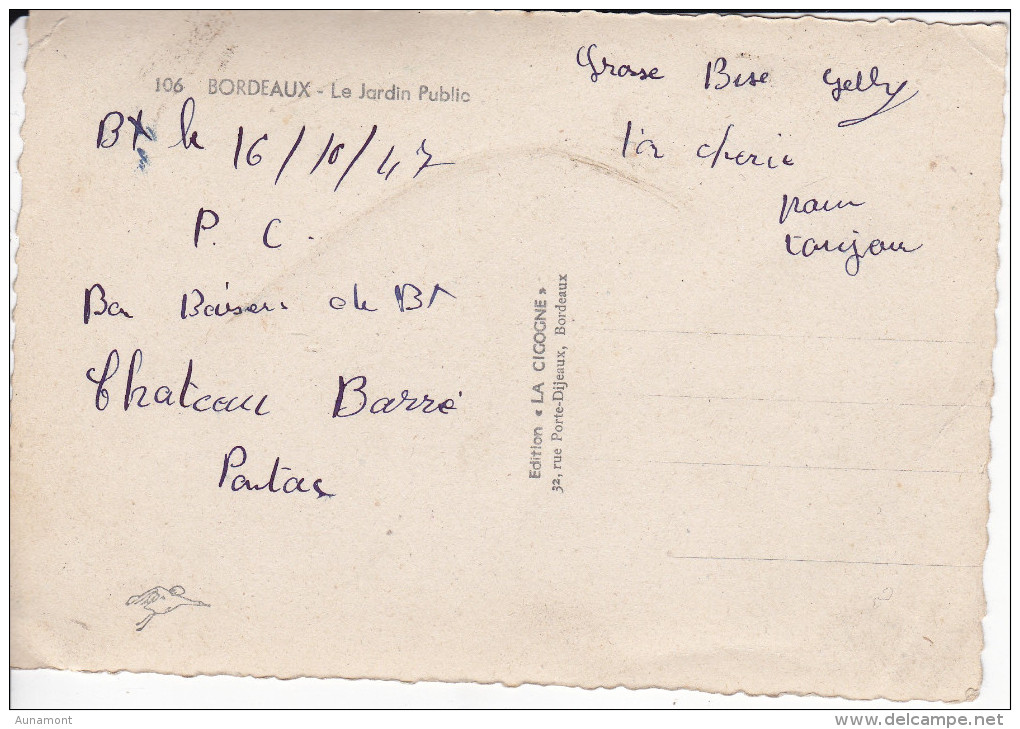 106 BORDEAUX - Le Jardin Public
Bx le 16/10/47
P. C.
Bon Baisers de Bx
Chateau Barré
Pontac
Edition « LA CIGOGNE »
32, rue Porte-Dijeaux, Bordeaux
Grosse Bise Gelly
ta cherie
pour
toujour
Aunamont
www.delcampe.net